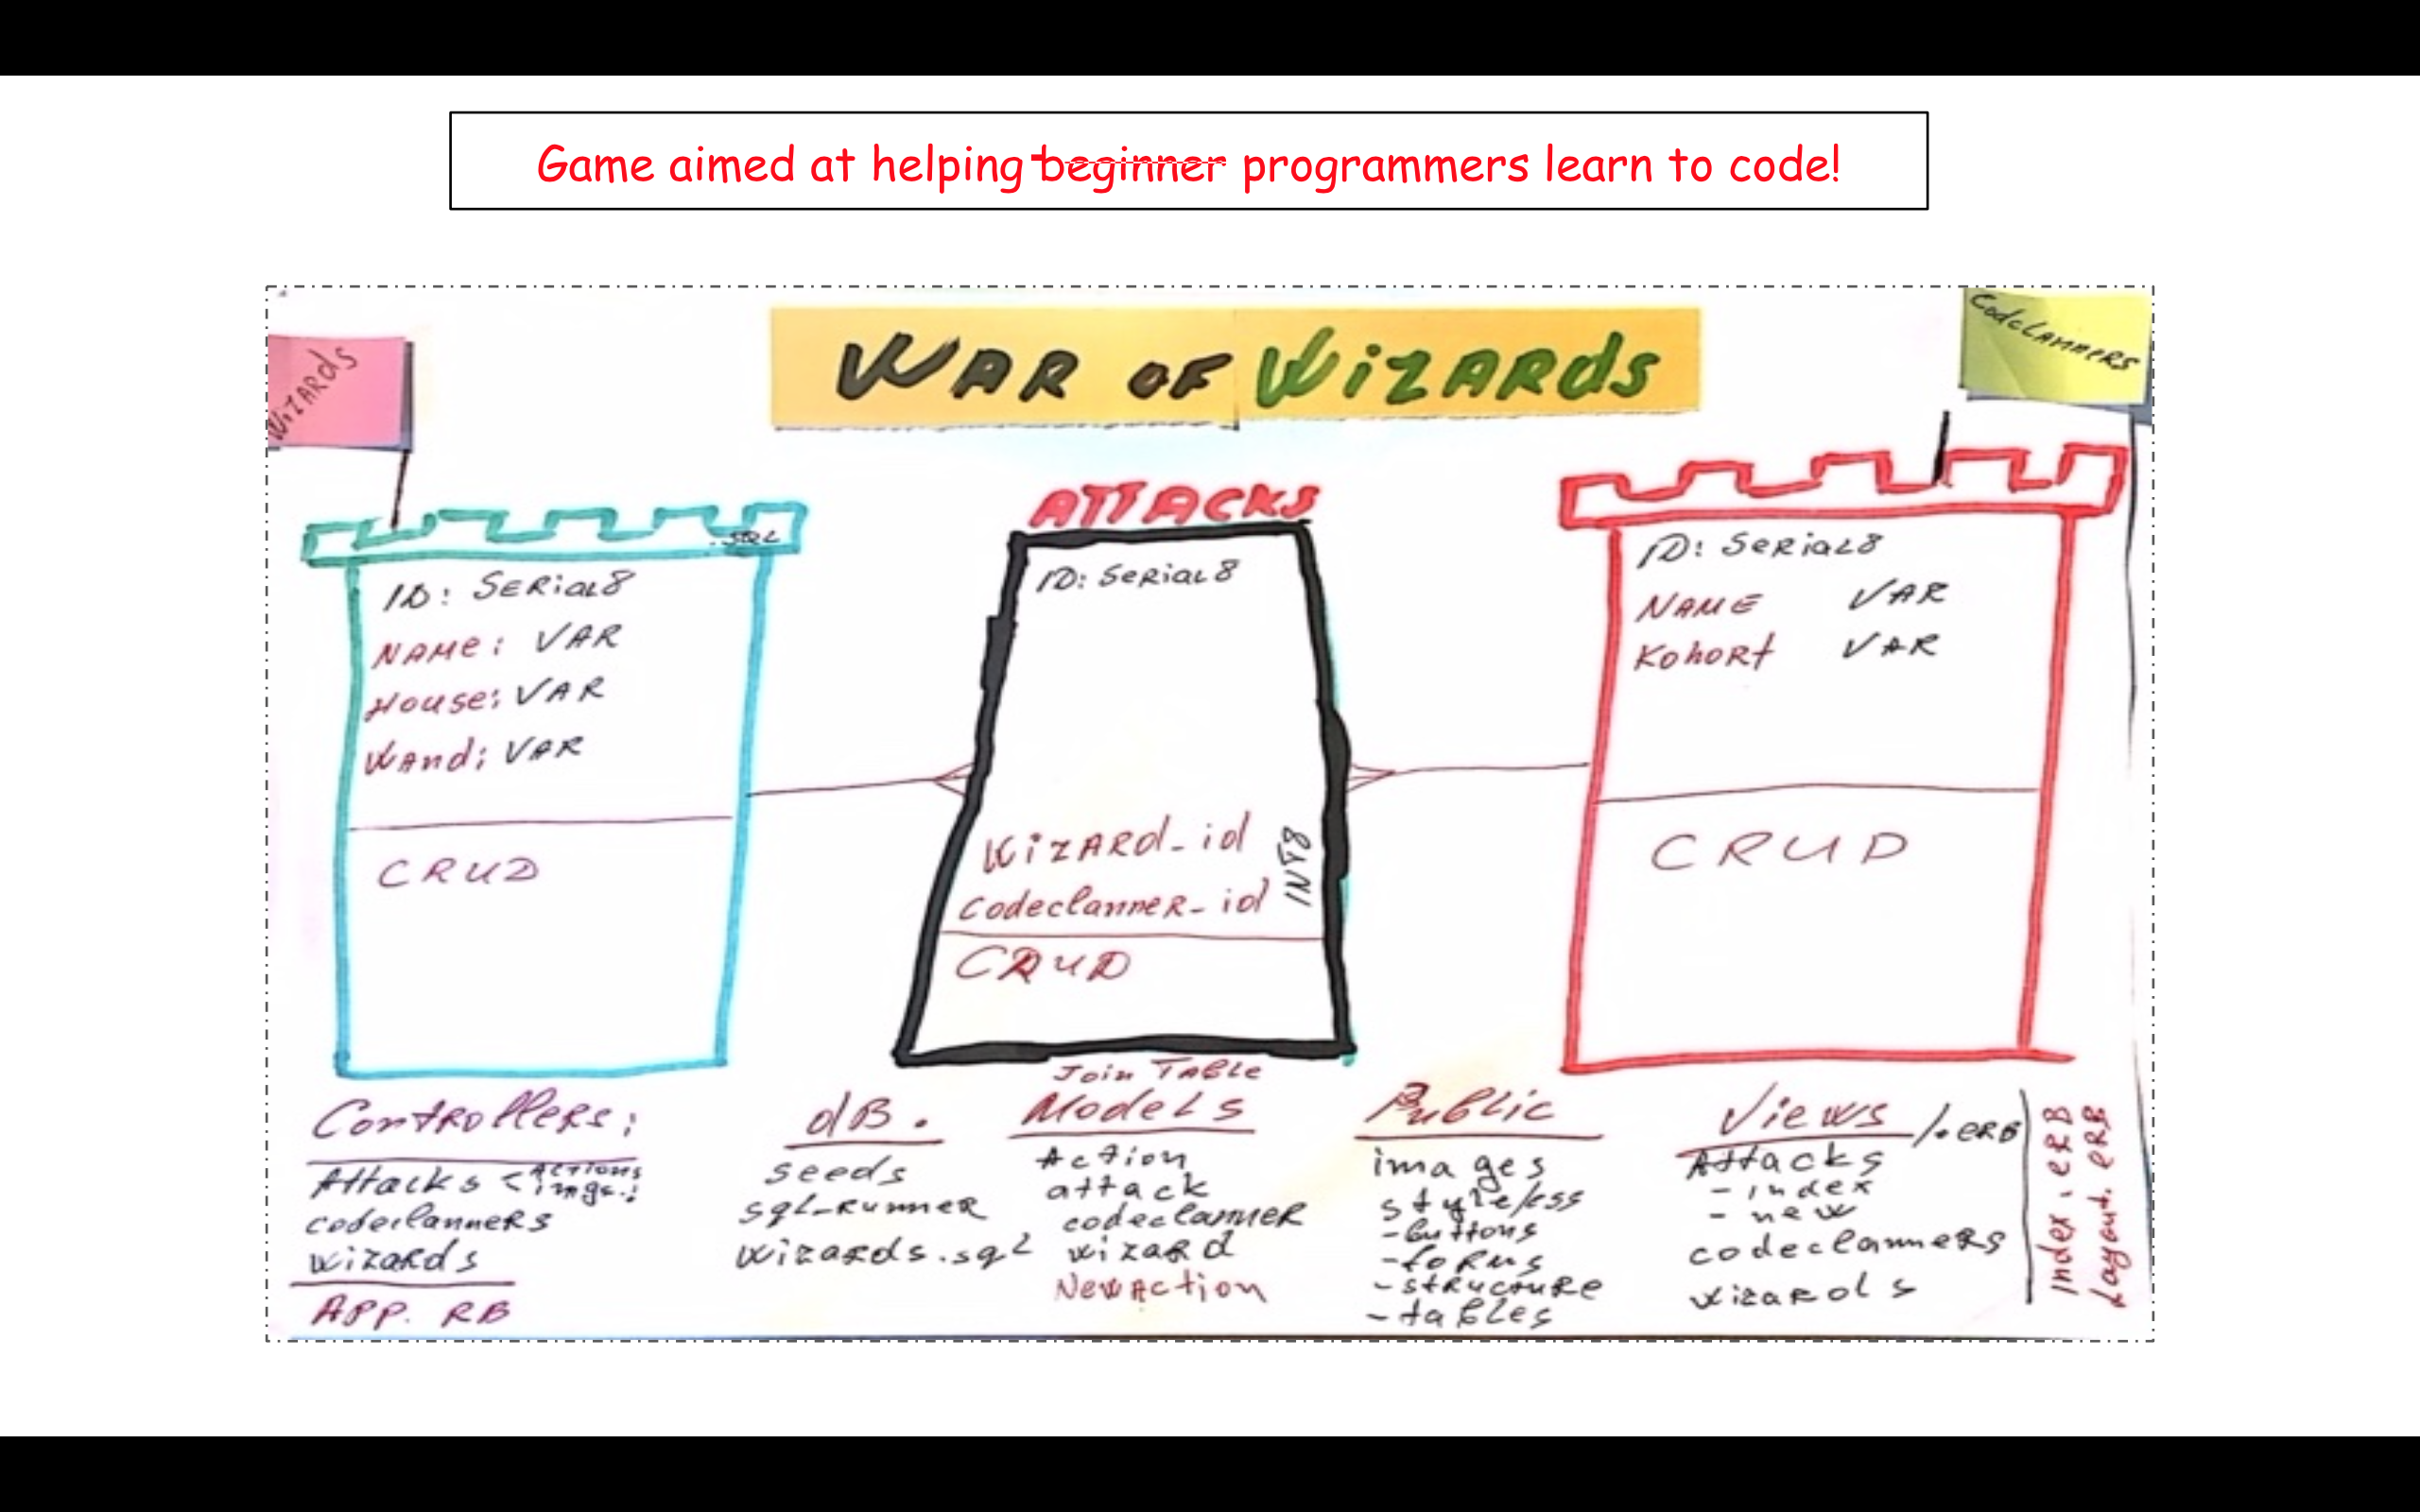 Game aimed at helping beginner programmers learn to code!
WAR OF WizARds
WizARds
CodeClanneRs
.SQL
ID: SERiaL8
NAMe: VAR
House: VAR
WAnd: VAR
CRUD
ATTACKS
ID: SeRiaL8
WizARd_id
codeclanneR_id
INT8
CRUD
Join TaBLe
ID: SeRiaL8
NAME VAR
KohoRt VAR
CRUD
ContRolleRs:
Attacks < Actions
imgs.:
codeclanneRs
wizaRds
APP. RB
dB.
seeds
sqL_Runner
wizaRds.sqL
ModeLs
Action
attack
codeclanneR
wizaRd
New Action
PuBLic
images
style/css
-buttons
-foRms
-stRuctuRe
-taBLes
Views /.eRB
Attacks
- index
- new
codeclanneRs
wizaRds
Index.eRB
Layout.eRB